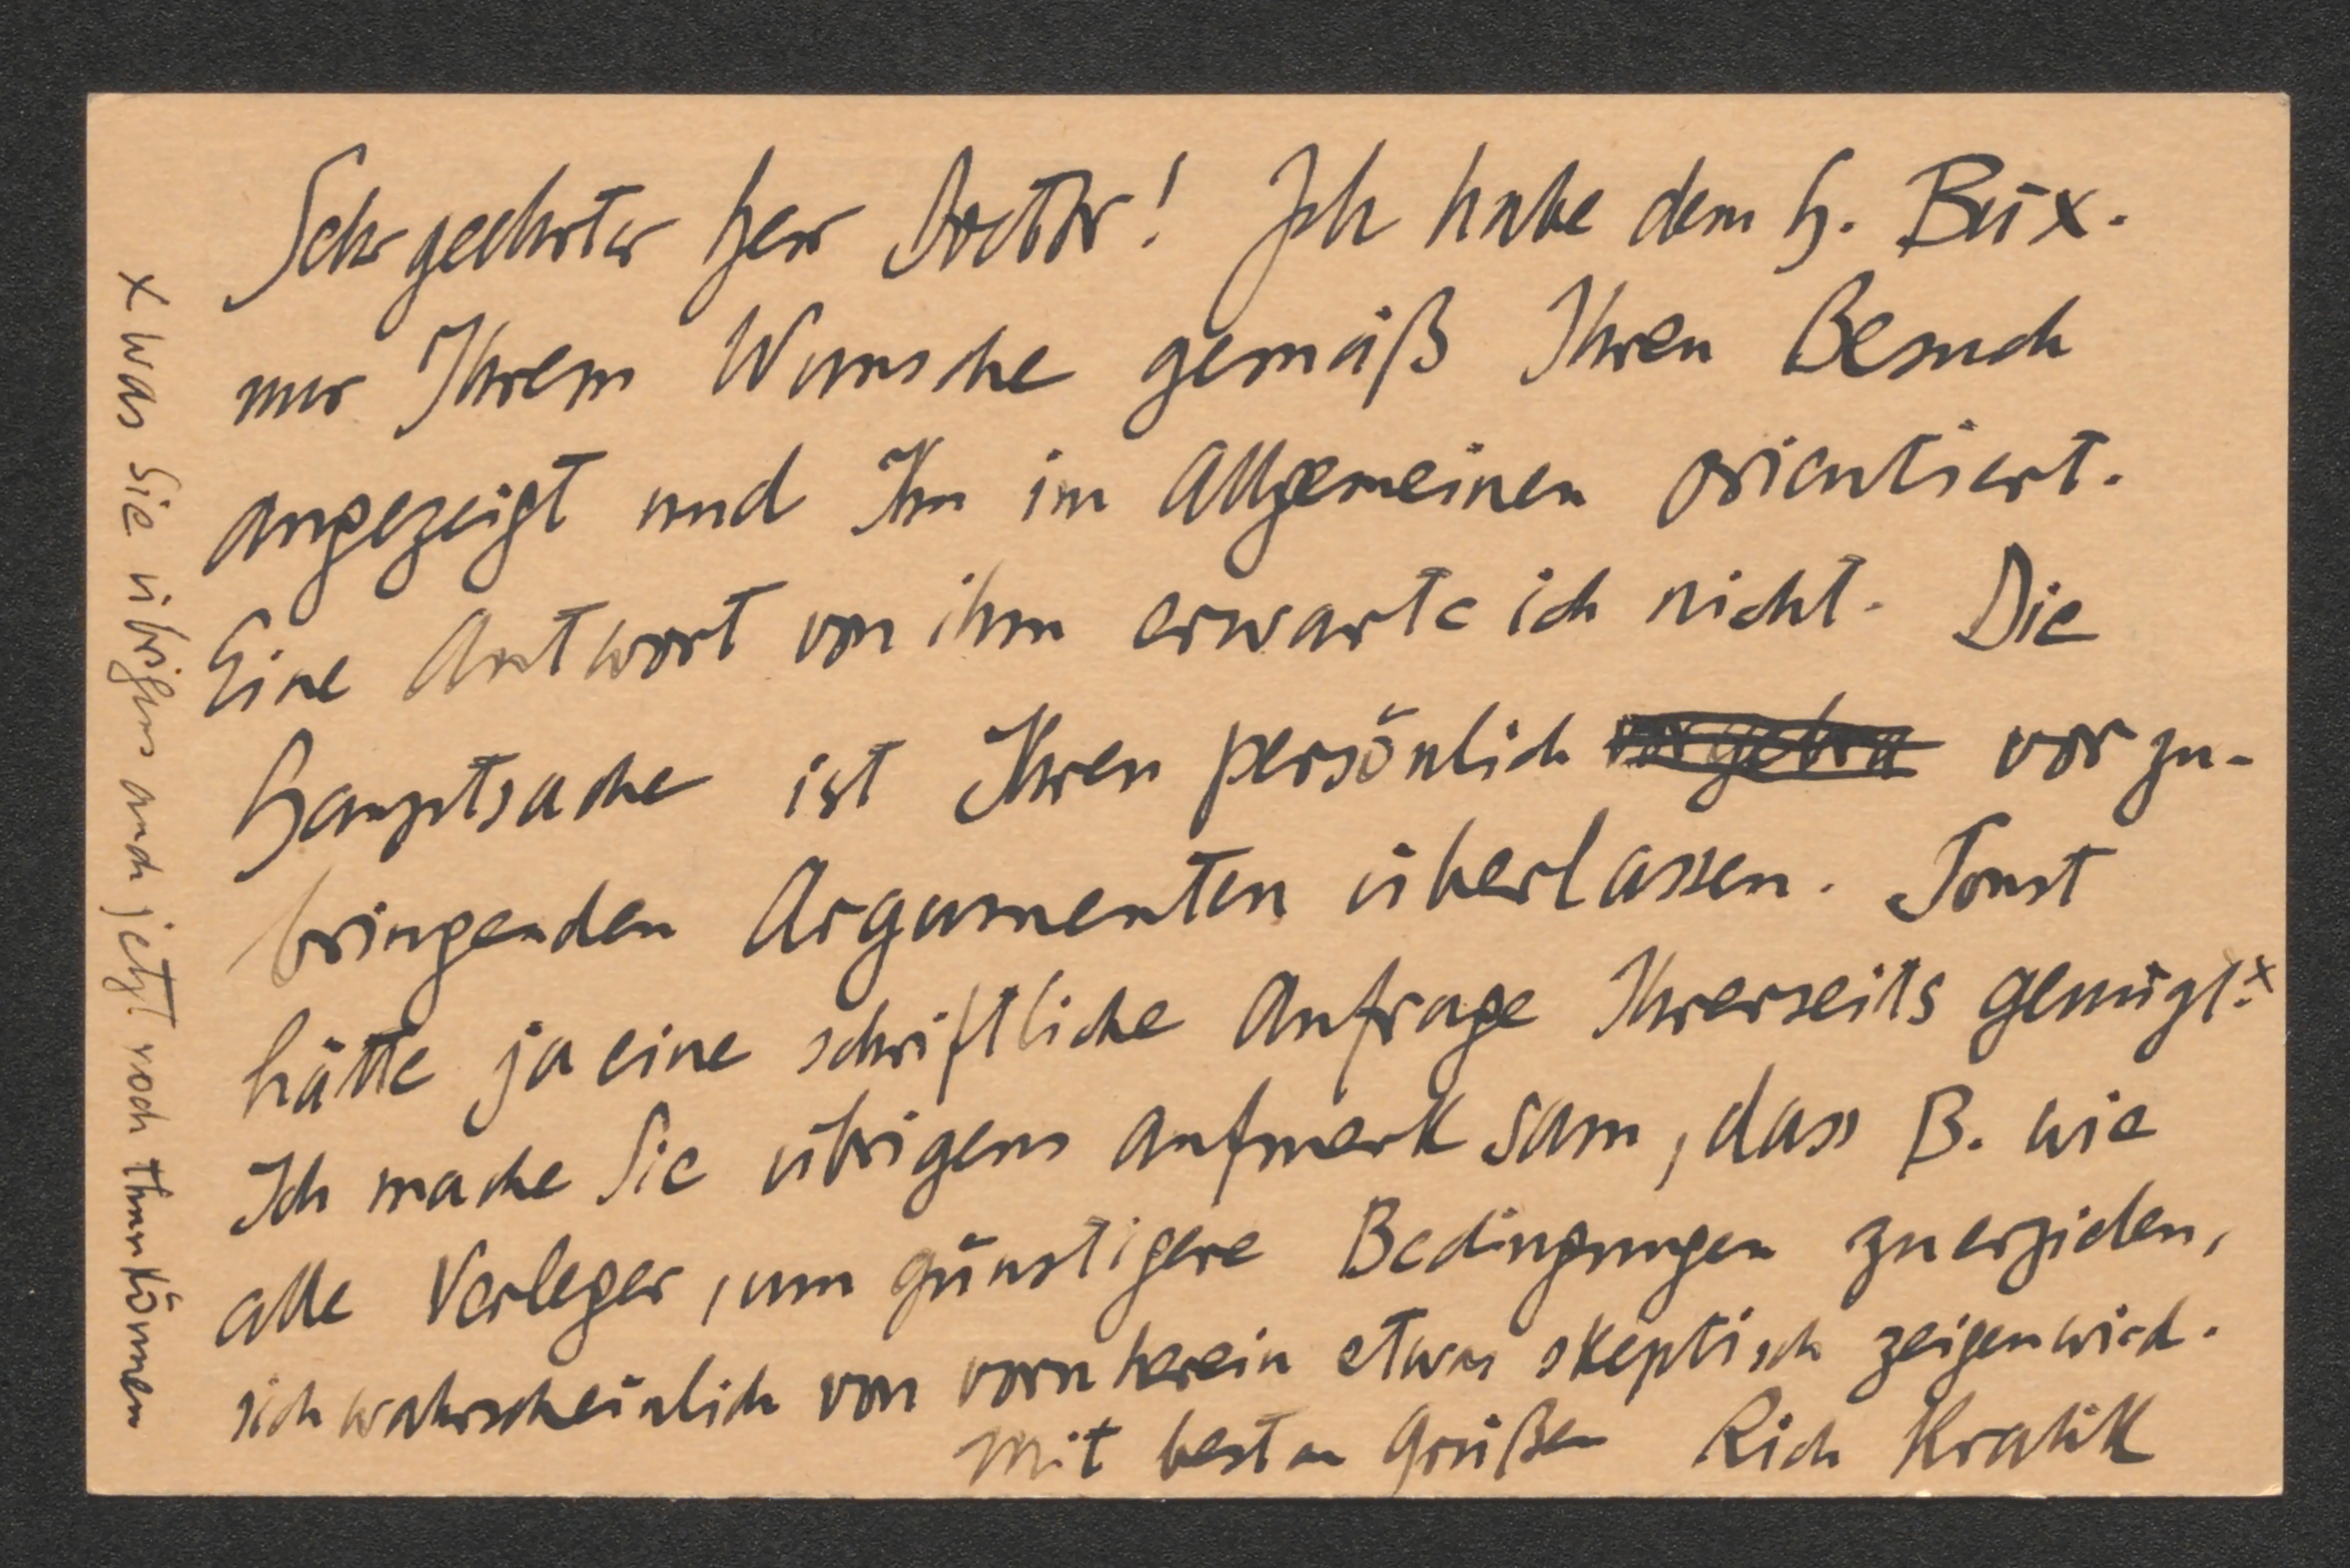 Sehr geehrter Herr Doctor! Ich habe dem H. Bux.
nur Ihrem Wunsche gemäß Ihren Besuch
angezeigt und Ihn im Allgemeinen orientiert.
Eine Antwort von ihm erwarte ich nicht. Die
Hauptsache ist Ihren persönlich vorgebra vorzu-
bringenden Argumenten überlassen. Sonst
hätte ja eine schriftliche Anfrage Ihrerseits genügt.x
Ich mache Sie übrigens aufmerksam, dass B. wie
alle Verleger, um günstigere Bedingungen zu erzielen,
sich wahrscheinlich von vornherein etwas skeptisch zeigen wird.
Mit besten Grüßen Rich Kralik
x was Sie übrigens auch jetzt noch thun können